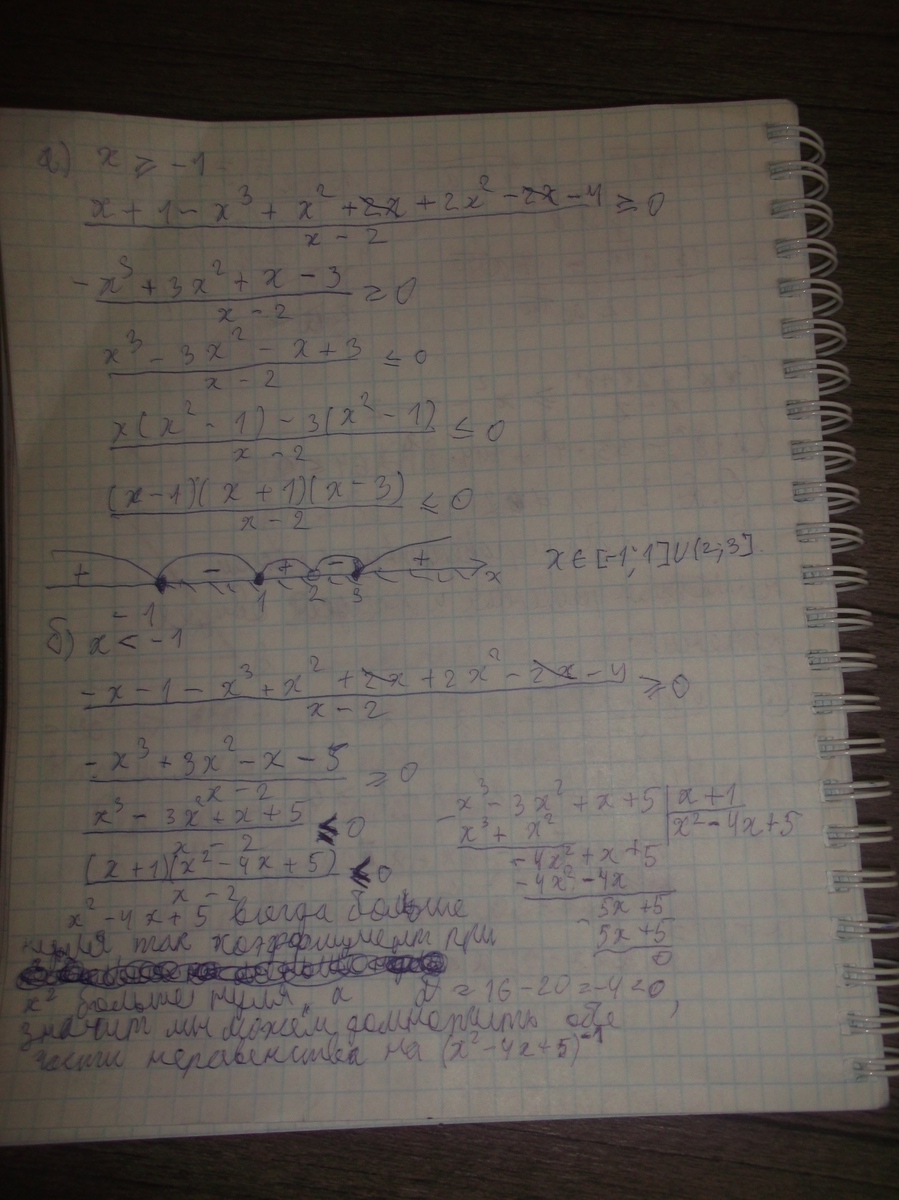 а) x ≥ -1
(x + 1 - x³ + x² + 2x + 2x² - 2x - 4)/(x - 2) ≥ 0
(-x³ + 3x² + x - 3)/(x - 2) ≥ 0
(x³ - 3x² - x + 3)/(x - 2) ≤ 0
(x(x² - 1) - 3(x² - 1))/(x - 2) ≤ 0
((x-1)(x+1)(x-3))/(x - 2) ≤ 0
+ - + - + x
-1 1 2 3
x ∈ [-1; 1] ∪ (2; 3]
б) x < -1
(-x - 1 - x³ + x² + 2x + 2x² - 2x - 4)/(x - 2) ≥ 0
(-x³ + 3x² - x - 5)/(x - 2) ≥ 0
(x³ - 3x² + x + 5)/(x - 2) ≤ 0
((x+1)(x² - 4x + 5))/(x - 2) ≤ 0
x³ - 3x² + x + 5 | x + 1
x³ + x² | x² - 4x + 5
-4x² + x + 5
-4x² - 4x
5x + 5
5x + 5
0
x² - 4x + 5 всегда больше
нуля так коэффициент при
x² больше нуля, а D = 16 - 20 = -4 < 0,
значит мы можем домножить обе
части неравенства на (x² - 4x + 5)⁻¹